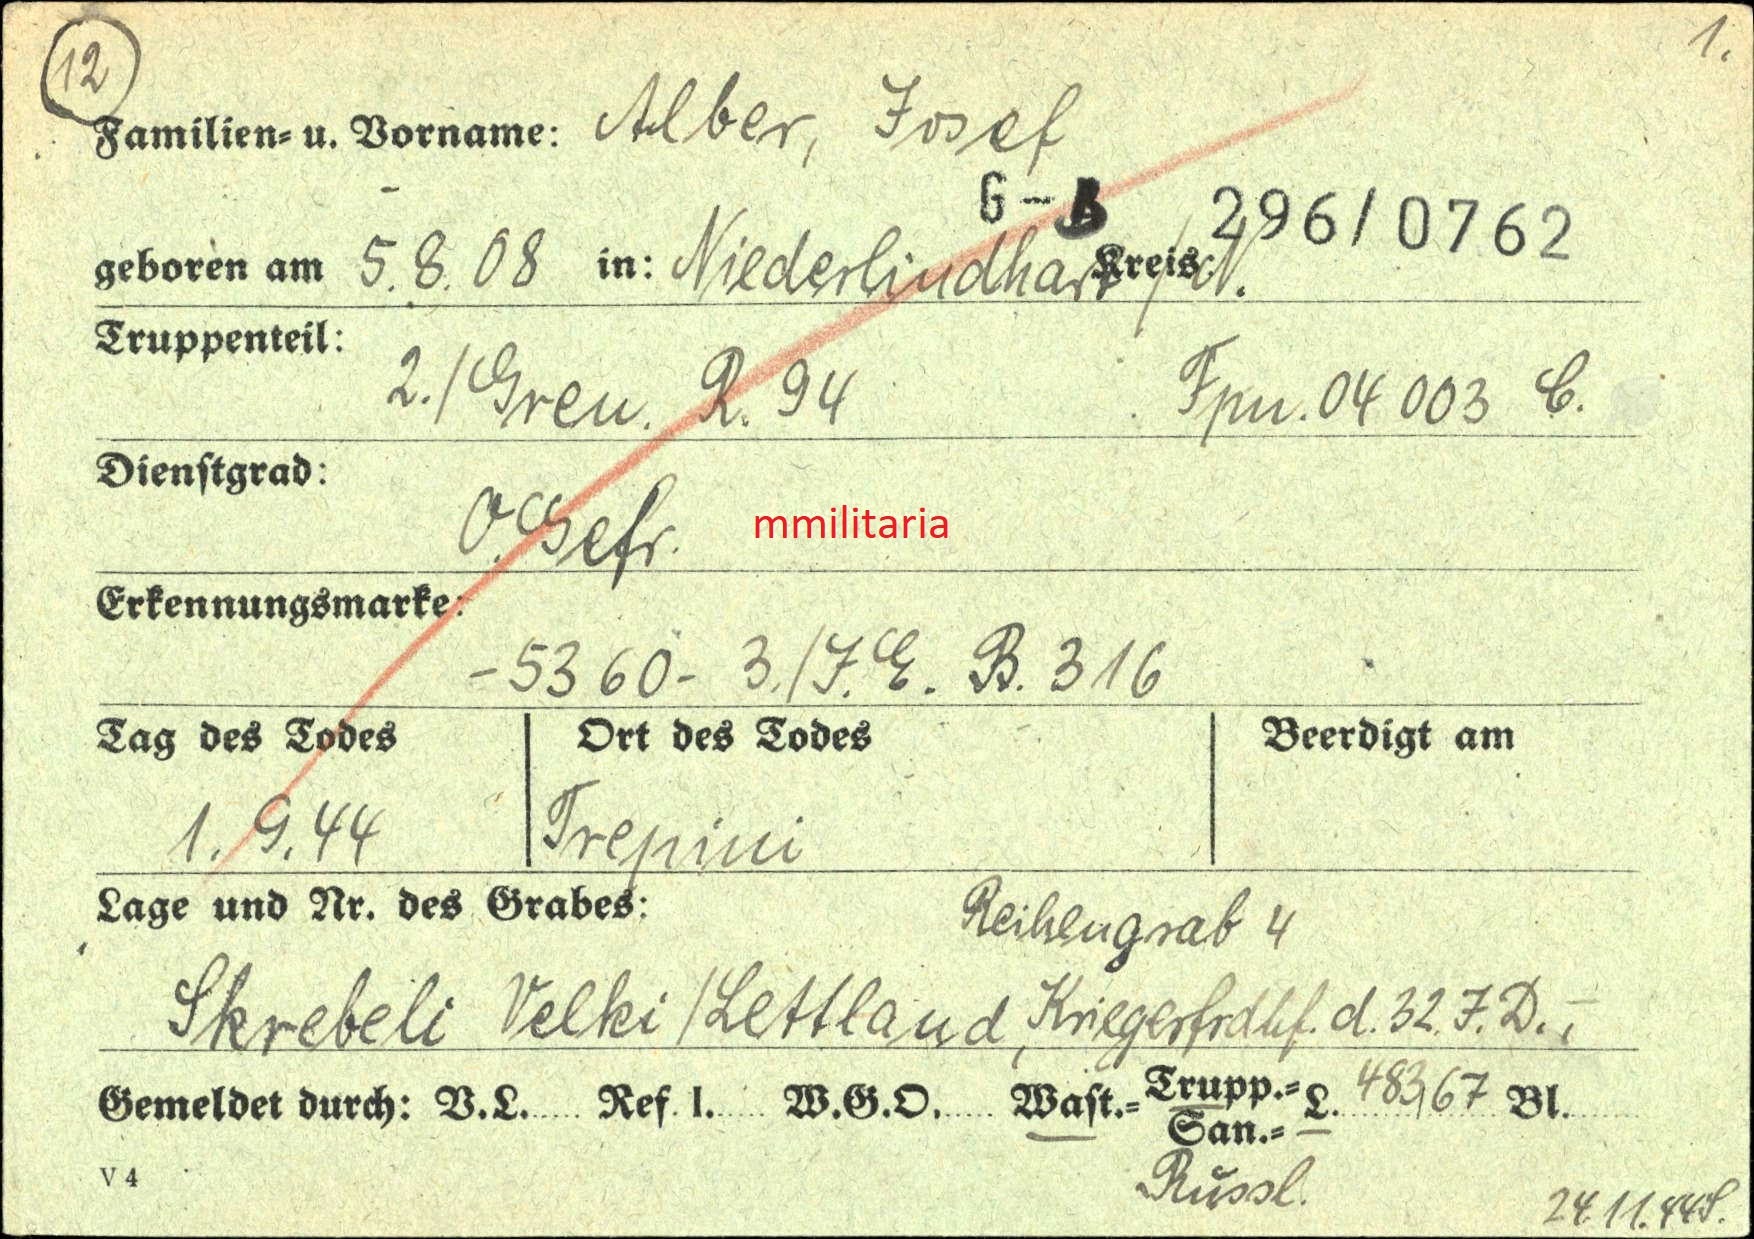 12
1.
Familien= u. Vorname: Alber, Josef
G - A 296/0762
geboren am 5.8.08 in: Niederlindhart Kreis: /N.
Truppenteil:
2./Gren. R. 94 Fpn. 04 003 C.
Dienstgrad:
O.Gefr.
mmilitaria
Erkennungsmarke:
-5360- 3./J.E. B. 316
Tag des Todes Ort des Todes Beerdigt am
1.9.44 Trepini
Lage und Nr. des Grabes:
Reihengrab 4
Skrebeli Velki/Lettland, Kriegerfrdhf. d. 32. J.D.
Gemeldet durch: V.L..... Ref. I..... W.G.O..... Wast.= Trupp.= San.= L. 483,67 Bl.
Russl.
V 4
24.11.44